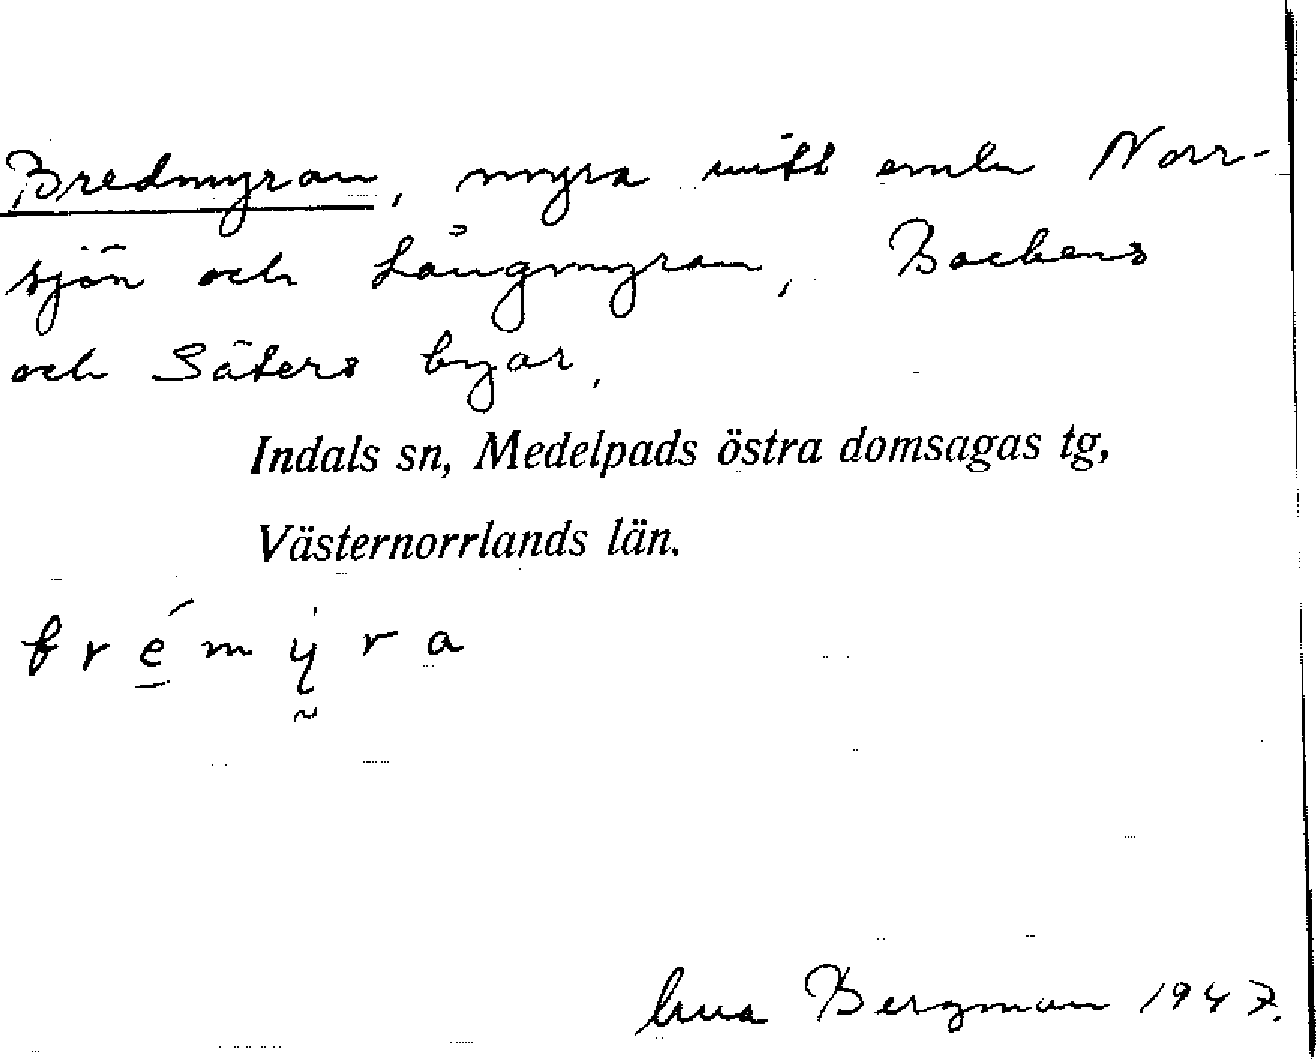 Bredmyran, myra mitt emln Norr-
sjön och Långmyran, Backens
och Säters byar.
Indals sn, Medelpads östra domsagas tg,
Västernorrlands län.
brémy̰ra
Bergman 1947.